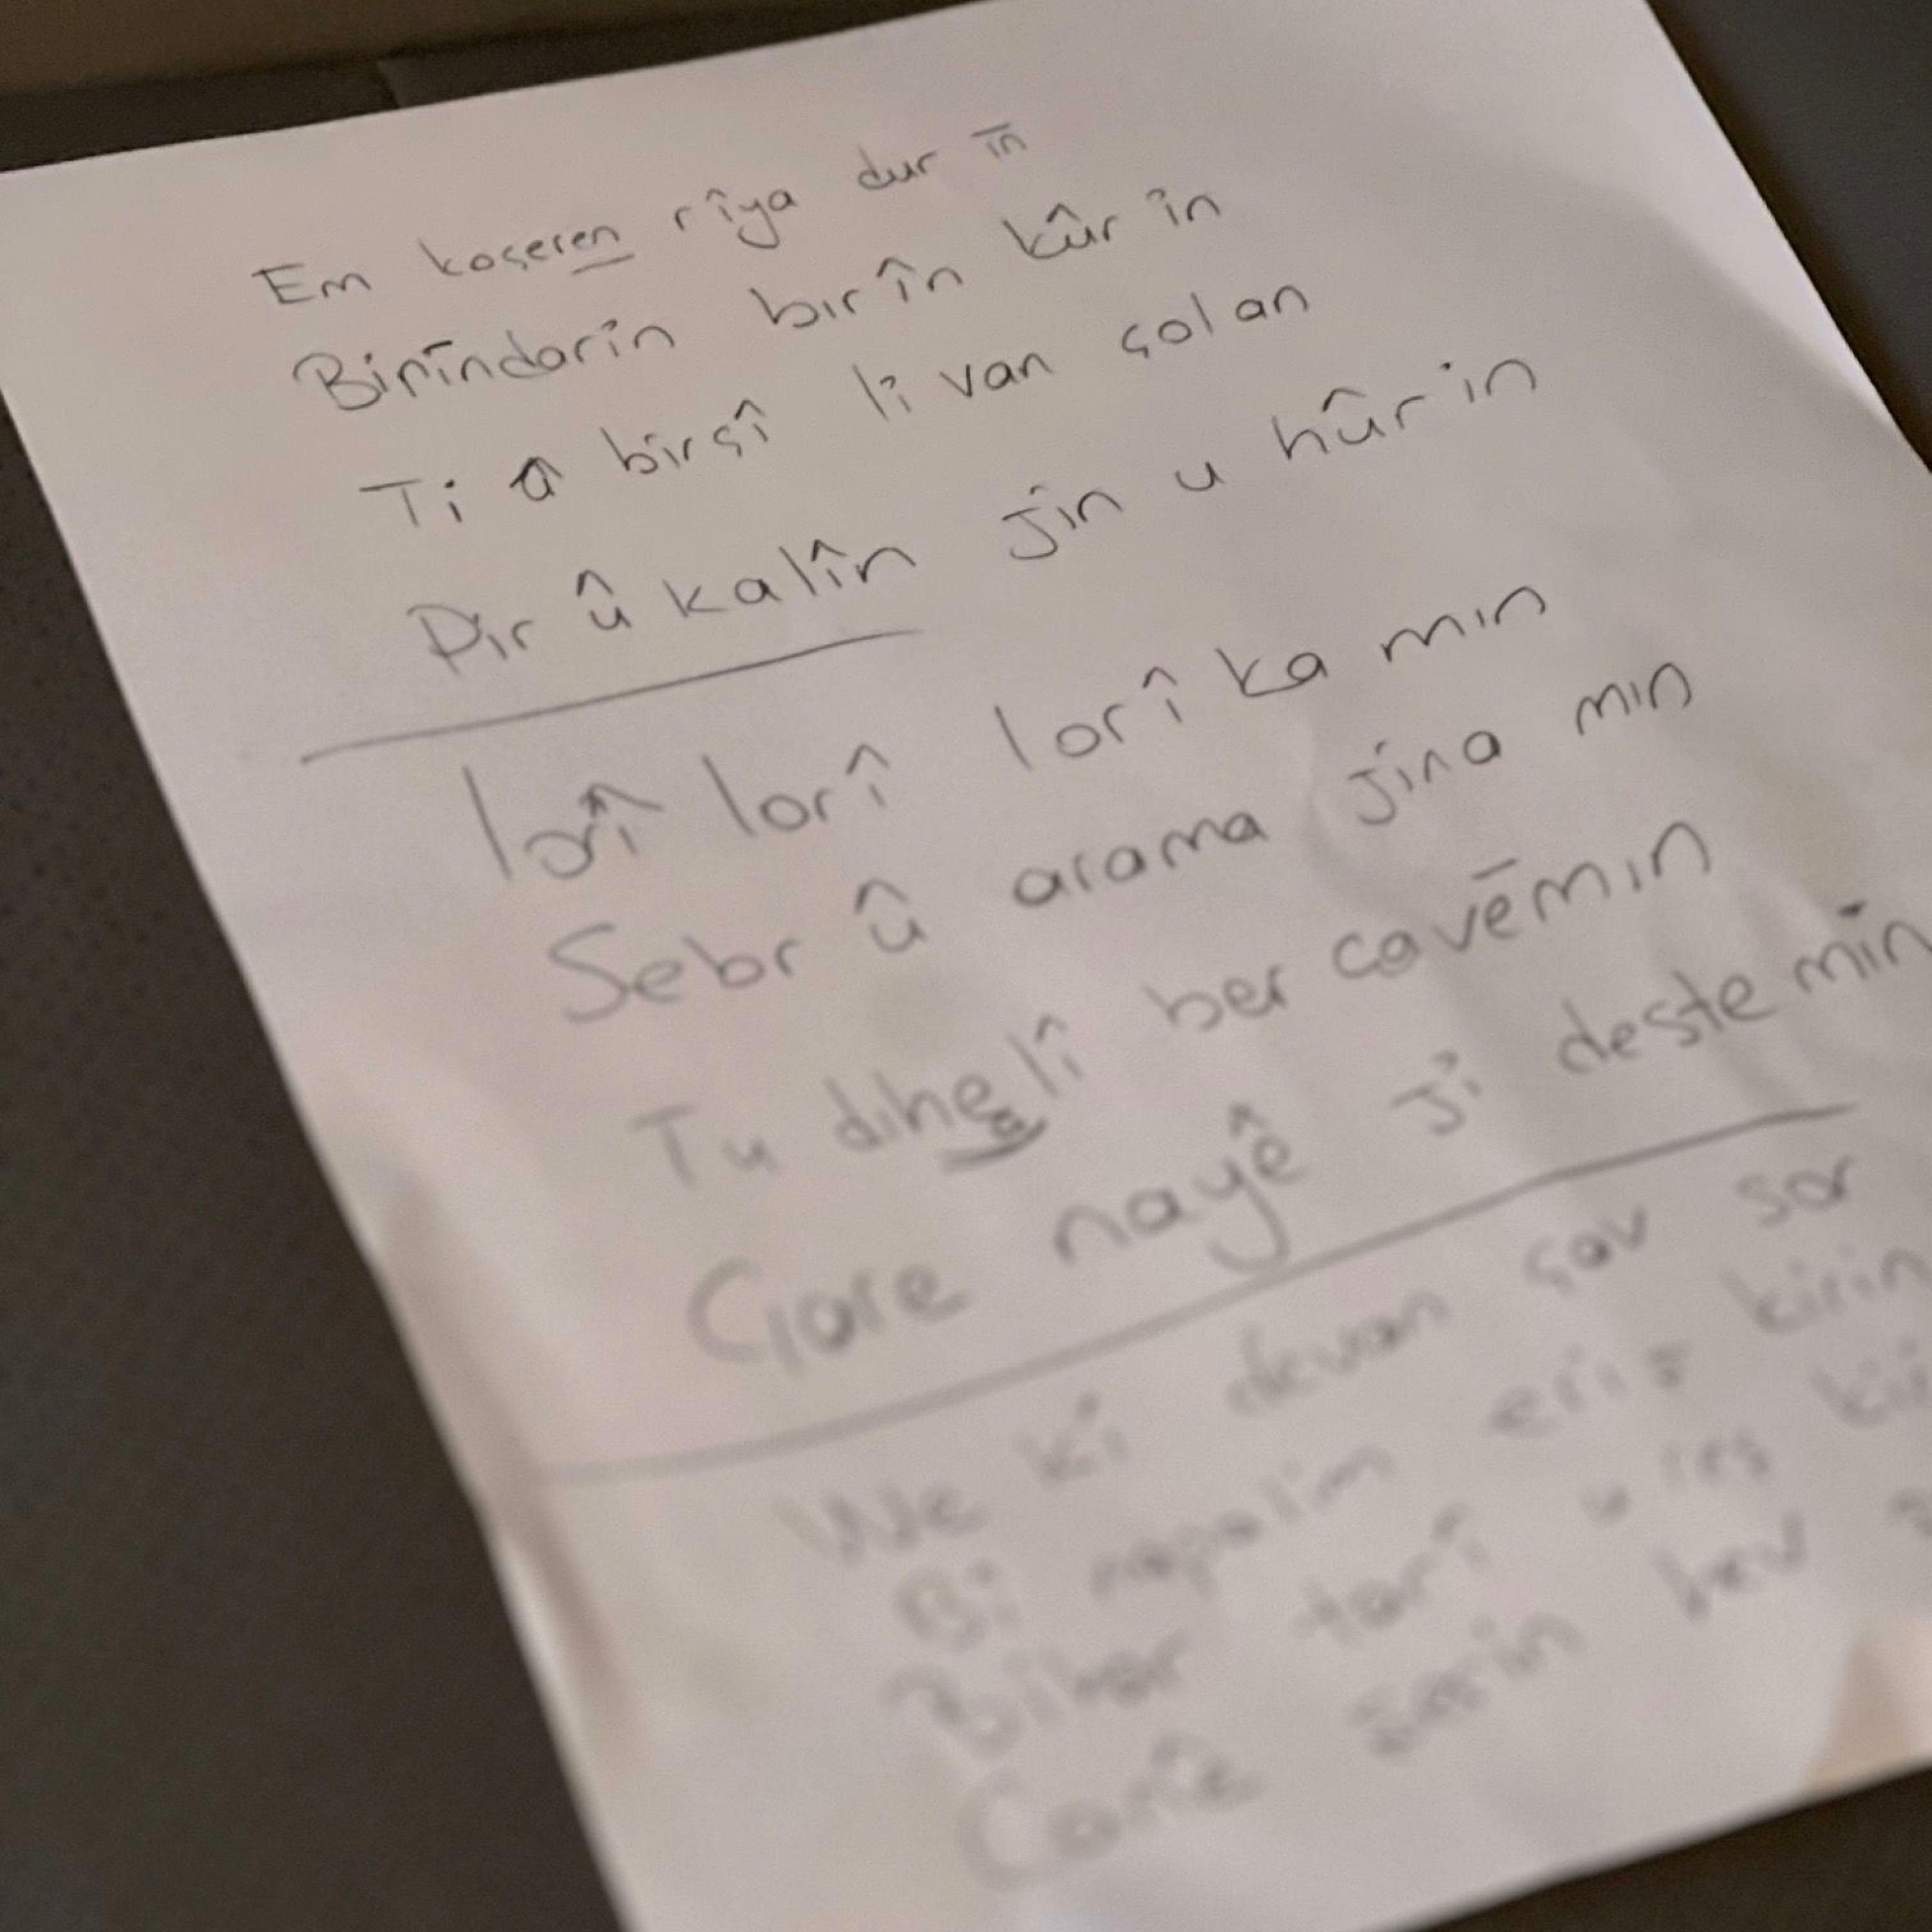 Em koçeren rîya dur in
Birîndarin bırîn kûr in
Ti û birsî li van çolan
Pir û kalîn jin u hûr in
lorî lorî lorî ka mın
Sebr û arama jina mın
Tu dıhelî ber cavēmın
Gare nayê ji deste min
We ki devan çav sor
Bi napalim eriş kirin
tarî u reş
hev